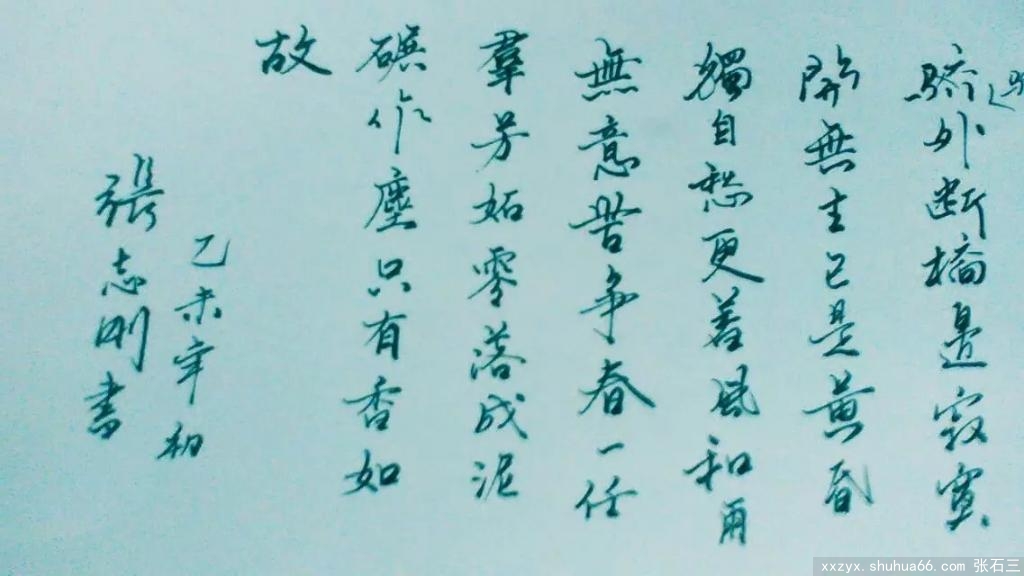 外断橋邊寂寞
開無主已是黄昏
獨自愁更著風和雨
無意苦争春一任
羣芳妬零落成泥
碾作塵只有香如
故
乙未年初
張志刚書
xxzyx.shuhua66.com 张石三